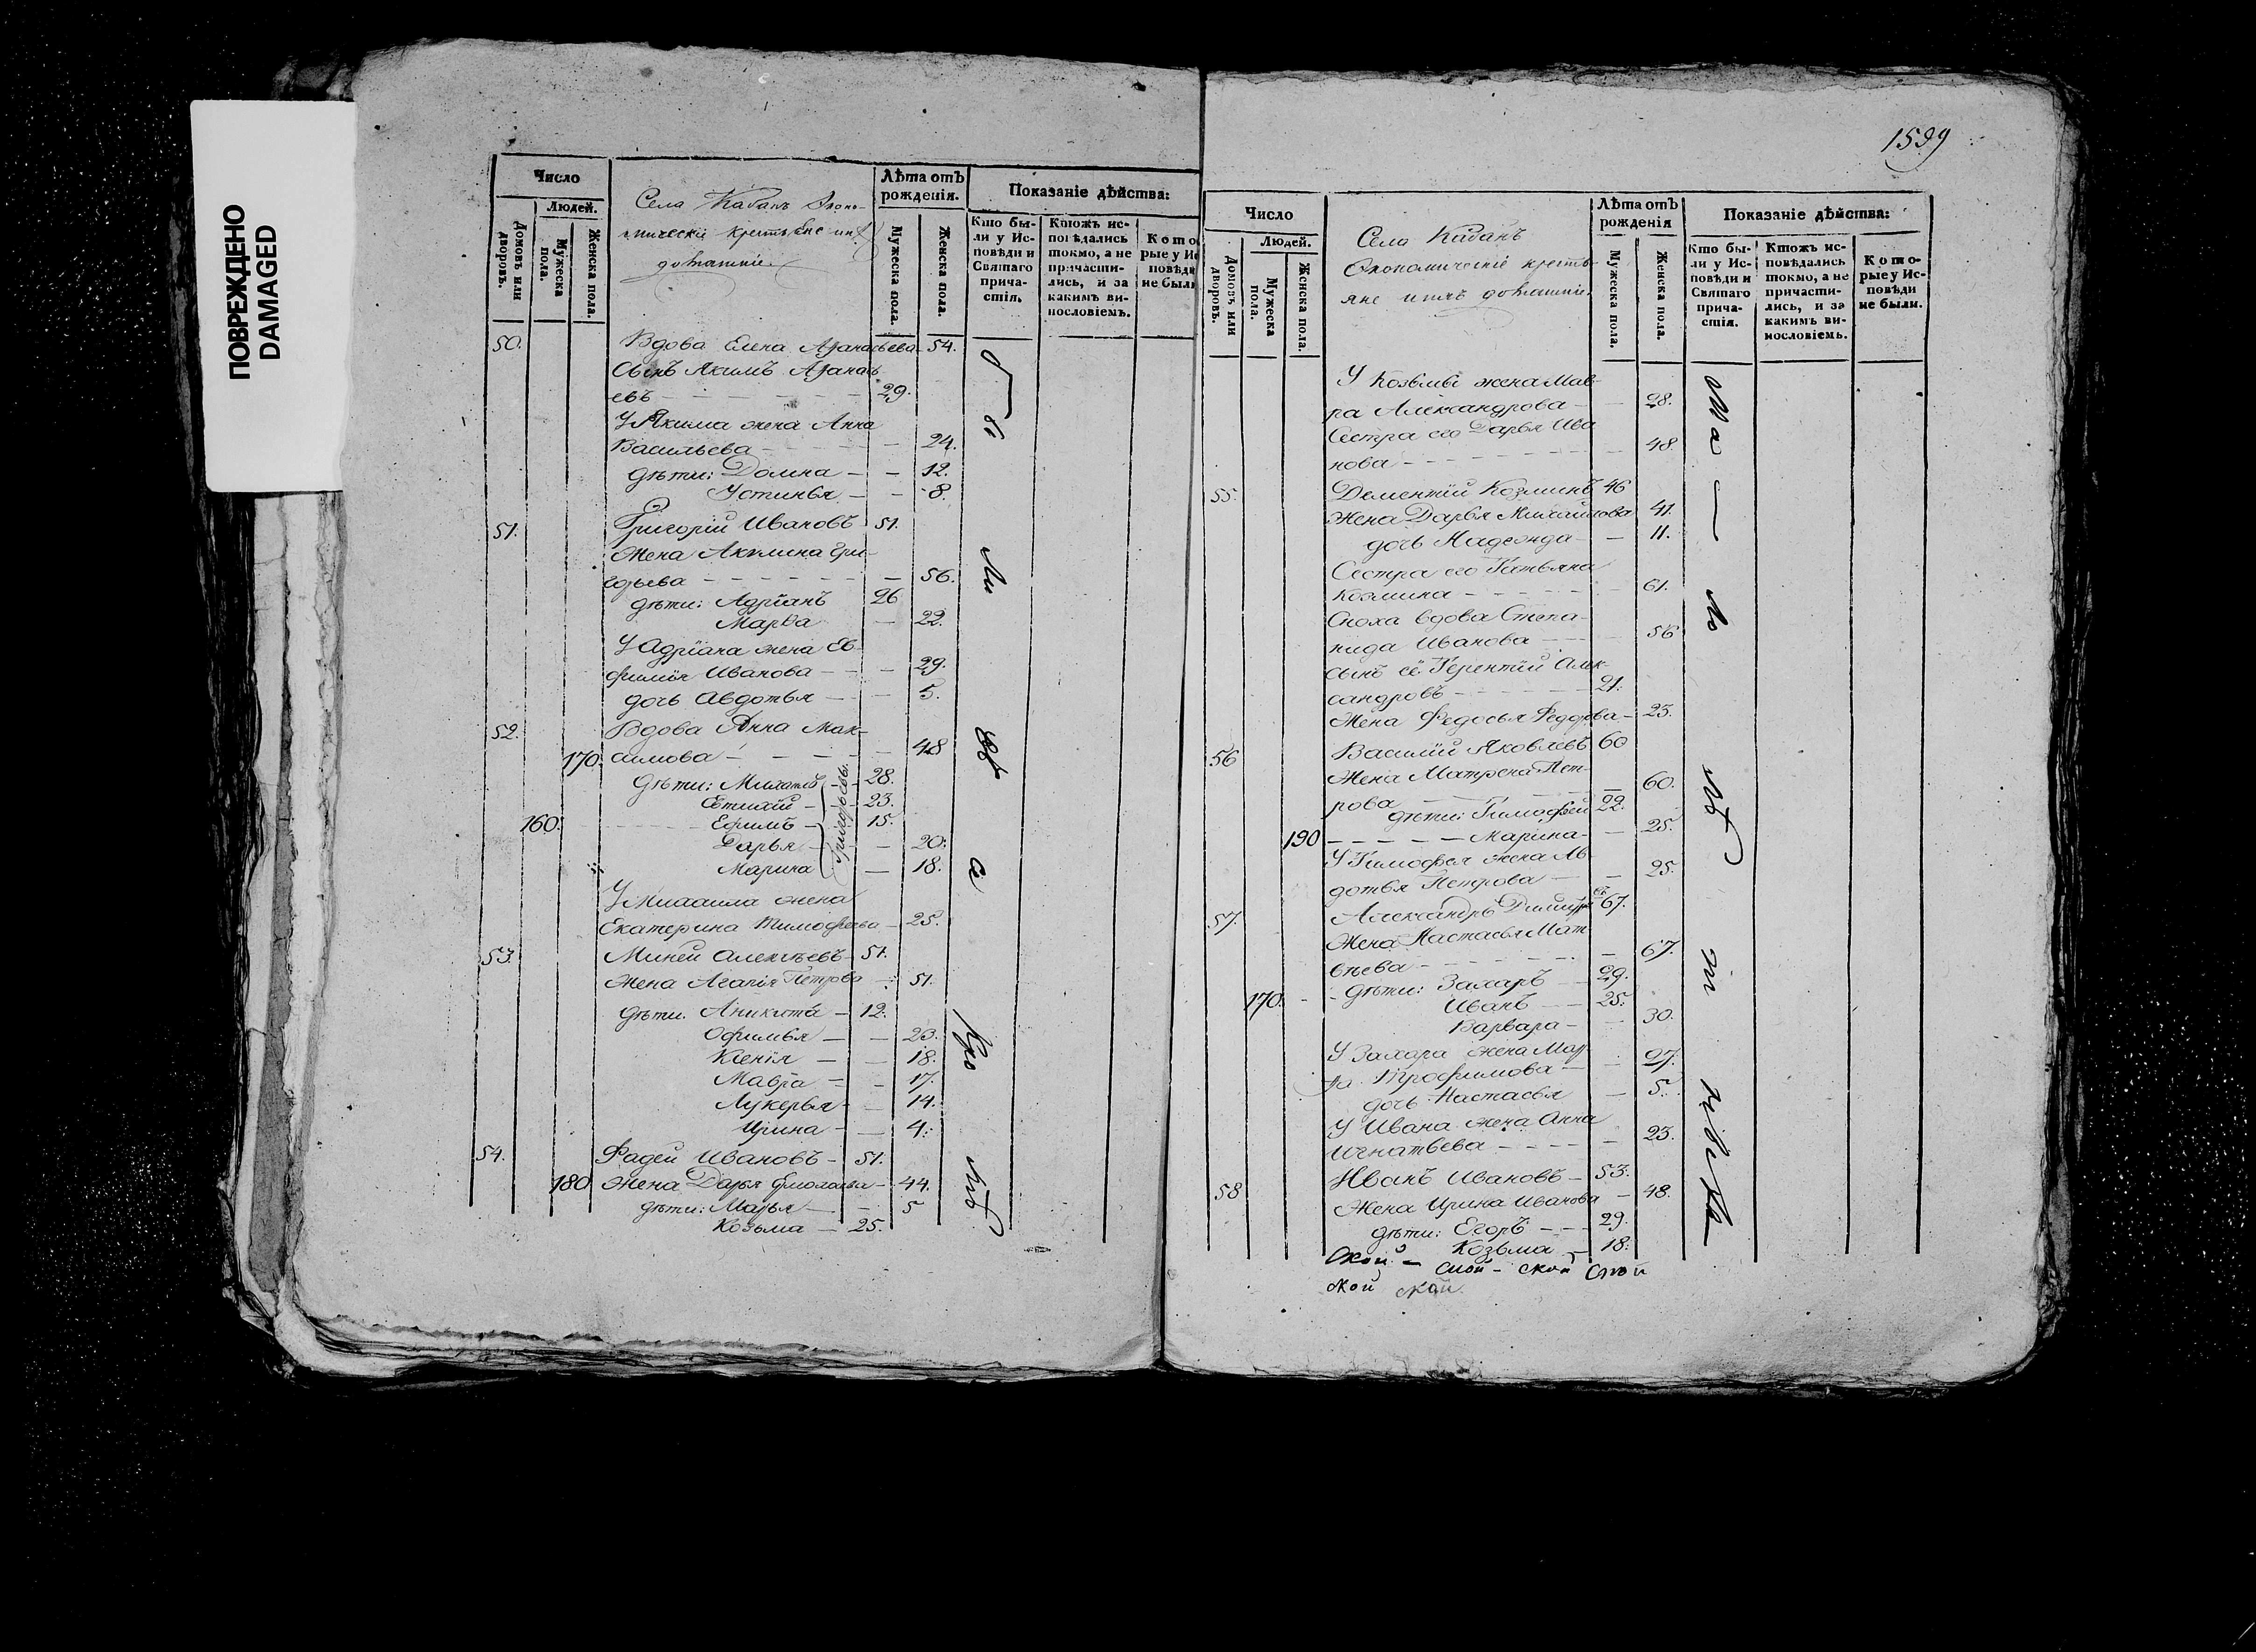 ПОВРЕЖДЕНО
DAMAGED
1599
Число
Людей.
Домовъ или дворовъ.
Мужеска пола.
Женска пола.
Села Кабанъ Эконо-
мическіе крестьяне и ихъ
домашніе.
Лѣта отъ рожденія.
Мужеска пола.
Женска пола.
Показаніе дѣйства:
Кто бы-
ли у Ис-
повѣди и
Святаго
прича-
стія.
Ктожъ ис-
повѣдались
токмо, а не
причасти-
лись, и за
какимъ ви-
нословіемъ.
Кото
рые у Ис
повѣди
не были
50. Вдова Елена Аѳанасьева - 54.
Сынъ Якимъ Аѳанась
евъ - 29.
У Якима жена Анна
Васильева - - 24.
дѣти: Домна - - 12.
Устинья - - 8.
51. Григорій Ивановъ 51.
Жена Акилина Гри-
горьева - - 56.
дѣти: Адріанъ 26
Марѳа - 22.
У Адріана жена Ев-
фимія Иванова - - 29.
дочь Авдотья - - 5.
52. Вдова Анна Мак-
170. симова - - 48
Дѣти: Михаилъ - 28.
Евтихій - 23.
160. Ефимъ - 15.
Дарья - - 20.
Марина - 18.
Григорьевы.
У Михаила жена
Екатерина Тимофеева - 25.
53. Миней Алексѣевъ - 51.
Жена Агапія Петрова - 51.
дѣти. Аникита - 12.
Офимья - - 23.
Ксенія - - 18.
Мавра - - 17.
Лукерья - - 14.
Ирина - - 4.
54. Фадей Ивановъ - 51.
180 Жена Дарья Ермолаева - 44.
дѣти: Марья - - 5
Козьма - 25.
Бы
ли
а
Число
Людей.
Домовъ или дворовъ.
Мужеска пола.
Женска пола.
Села Кабанъ
Экономическіе кресть-
яне и ихъ домашніе.
Лѣта отъ рожденія
Мужеска пола.
Женска пола.
Показаніе дѣйства:
Кто бы-
ли у Ис-
повѣди и
Святаго
прича-
стія.
Ктожъ ис-
повѣдались
токмо, а не
причасти-
лись, и за
какимъ ви-
нословіемъ.
Кото-
рые у Ис-
повѣди
не были.
У Козьмы жена Мав-
ра Александрова - - 28.
Сестра его Дарья Ива
нова - - 48.
55. Дементій Козминъ 46
Жена Дарья Михайлова 41.
дочь Надежда - - 11.
Сестра его Татьяна
Козмина - - 61.
Сноха вдова Степа-
нида Иванова - - 56
сынъ её Терентій Алек-
сандровъ - 21.
Жена Федосья Федорова - 23.
56 Василій Яковлевъ 60
Жена Матрена Пет-
рова - - 60.
дѣти: Тимофей 22.
190 - Марина - - 25.
У Тимофея жена Ав-
дотья Петрова - - 25.
57. Александръ Димитріевъ 67.
Жена Настасья Мат
вѣева - - 67.
Дѣти: Захаръ - 29.
170. Иванъ - 25.
Варвара - - 30.
У Захара жена Мар-
ѳа Трофимова - - 27.
дочь Настасья - 5.
У Ивана жена Анна
Игнатьева - - 23.
58 Иванъ Ивановъ - 53.
Жена Ирина Иванова - 48.
дѣти: Егоръ - 29.
Козьма - 18.
ской - ской - ской ской
ской ской